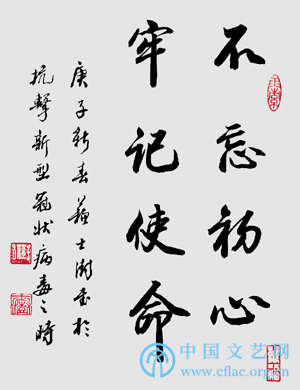 不忘初心
牢记使命
庚子新春蘇士澍书於
抗擊新型冠狀病毒之時
中国文艺网
www.cflac.org.cn